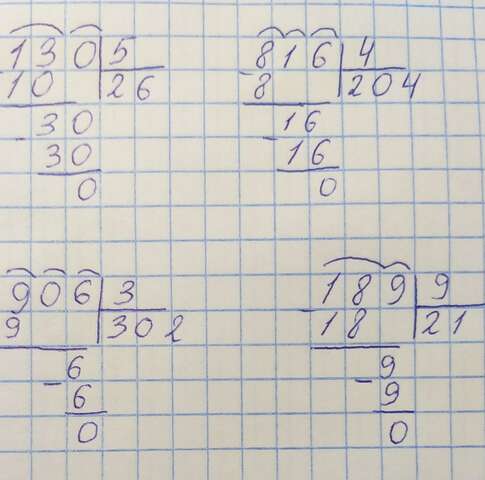 130 5
10 26
- 30
30
0
816 4
- 8 204
- 16
16
0
906 3
9 302
- 6
6
0
189 9
- 18 21
- 9
9
0